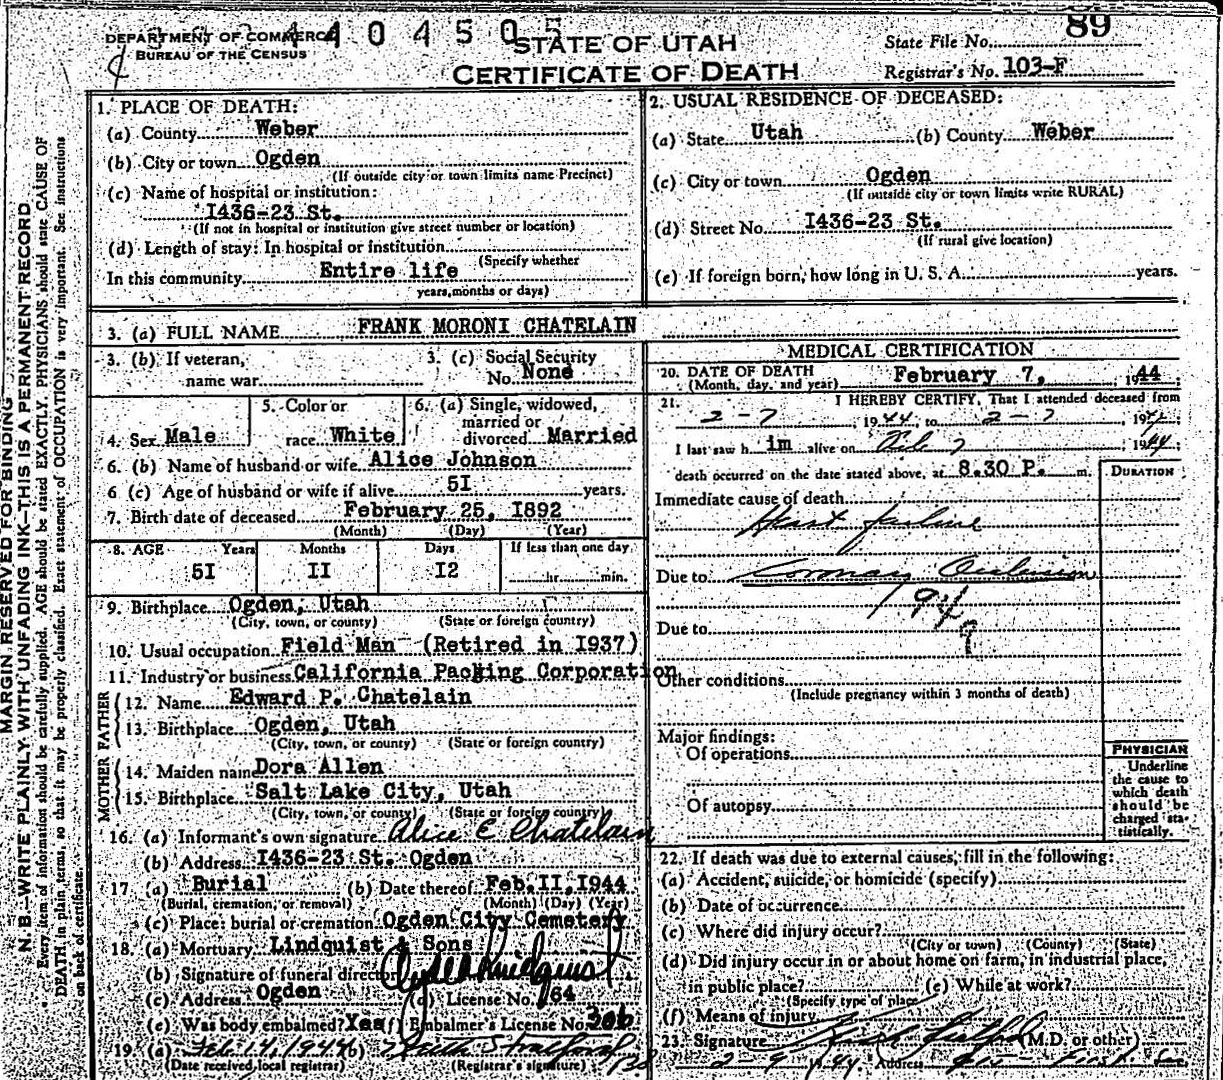 DEPARTMENT OF COMMERCE
BUREAU OF THE CENSUS
404505
STATE OF UTAH
CERTIFICATE OF DEATH
State File No. 89
Registrar's No. 103-F
MARGIN RESERVED FOR BINDING
N. B.—WRITE PLAINLY, WITH UNFADING INK—THIS IS A PERMANENT RECORD.
Every item of information should be carefully supplied. AGE should be stated EXACTLY. PHYSICIANS should state CAUSE OF
DEATH in plain terms, so that it may be properly classified. Exact statement of OCCUPATION is very important. See instructions
on back of certificate.
1. PLACE OF DEATH:
(a) County Weber
(b) City or town Ogden
(If outside city or town limits name Precinct)
(c) Name of hospital or institution:
I436-23 St.
(If not in hospital or institution give street number or location)
(d) Length of stay: In hospital or institution
(Specify whether
In this community Entire life
years, months or days)
2. USUAL RESIDENCE OF DECEASED:
(a) State Utah (b) County Weber
(c) City or town Ogden
(If outside city or town limits write RURAL)
(d) Street No. I436-23 St.
(If rural give location)
(e) If foreign born, how long in U. S. A. years.
3. (a) FULL NAME FRANK MORONI CHATELAIN
3. (b) If veteran,
name war
3. (c) Social Security
No. None
4. Sex Male
5. Color or
race White
6. (a) Single, widowed,
married or
divorced Married
6. (b) Name of husband or wife Alice Johnson
6 (c) Age of husband or wife if alive 5I years.
7. Birth date of deceased February 25, I892
(Month) (Day) (Year)
8. AGE Years Months Days If less than one day
5I II I2 hr. min.
9. Birthplace Ogden, Utah
(City, town, or county) (State or foreign country)
10. Usual occupation Field Man (Retired in I937)
11. Industry or business California Packing Corporation
FATHER
12. Name Edward P. Chatelain
13. Birthplace Ogden, Utah
(City, town, or county) (State or foreign country)
MOTHER
14. Maiden name Dora Allen
15. Birthplace Salt Lake City, Utah
(City, town, or county) (State or foreign country)
16. (a) Informant's own signature Alice E Chatelain
(b) Address I436-23 St. Ogden
17 (a) Burial (b) Date thereof Feb. II, I944
(Burial, cremation, or removal) (Month) (Day) (Year)
(c) Place: burial or cremation Ogden City Cemetery
18. (a) Mortuary Lindquist & Sons
(b) Signature of funeral director Clyde Lindquist
(c) Address Ogden (d) License No. 64
(e) Was body embalmed? Yes (f) Embalmer's License No. 306
19 (a) Feb. 14, 1944 (b)
(Date received local registrar) (Registrar's signature)
MEDICAL CERTIFICATION
20. DATE OF DEATH
(Month, day, and year) February 7, 1944
21. I HEREBY CERTIFY, That I attended deceased from
2-7, 1944, to 2-7, 1944;
I last saw him alive on Feb 7, 1944;
death occurred on the date stated above, at 8.30 P. m.
DURATION
Immediate cause of death
Heart failure
Due to Coronary Occlusion
Due to
Other conditions
(Include pregnancy within 3 months of death)
Major findings:
Of operations
Of autopsy
PHYSICIAN
Underline
the cause to
which death
should be
charged sta-
tistically.
22. If death was due to external causes, fill in the following:
(a) Accident, suicide, or homicide (specify)
(b) Date of occurrence
(c) Where did injury occur?
(City or town) (County) (State)
(d) Did injury occur in or about home on farm, in industrial place,
in public place? (e) While at work?
(Specify type of place)
(f) Means of injury
23. Signature (M.D. or other)
2-9 1944 Address